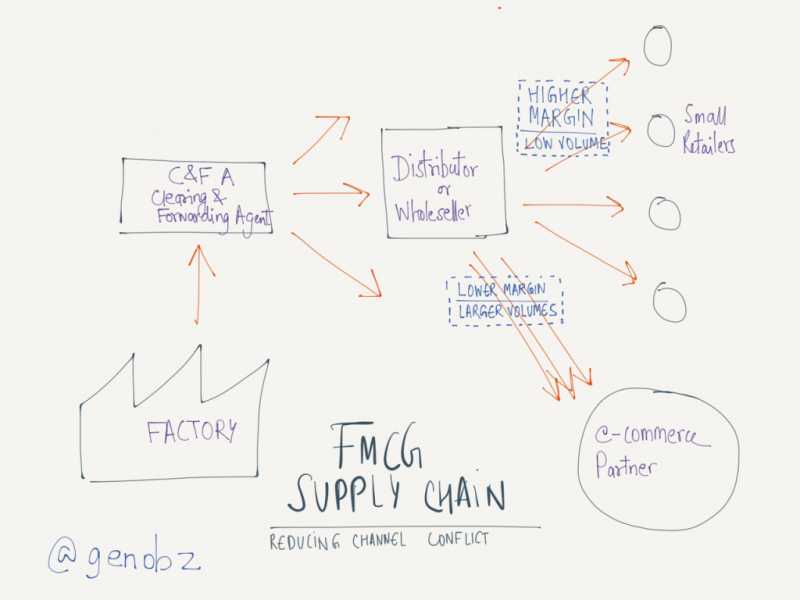 HIGHER
MARGIN
LOW VOLUME
Small
Retailers
C&F A
Clearing &
Forwarding Agent
Distributor
or
Wholeseller
LOWER MARGIN
LARGER VOLUMES
FACTORY
e-commerce
Partner
FMCG
SUPPLY CHAIN
REDUCING CHANNEL CONFLICT
@genobz